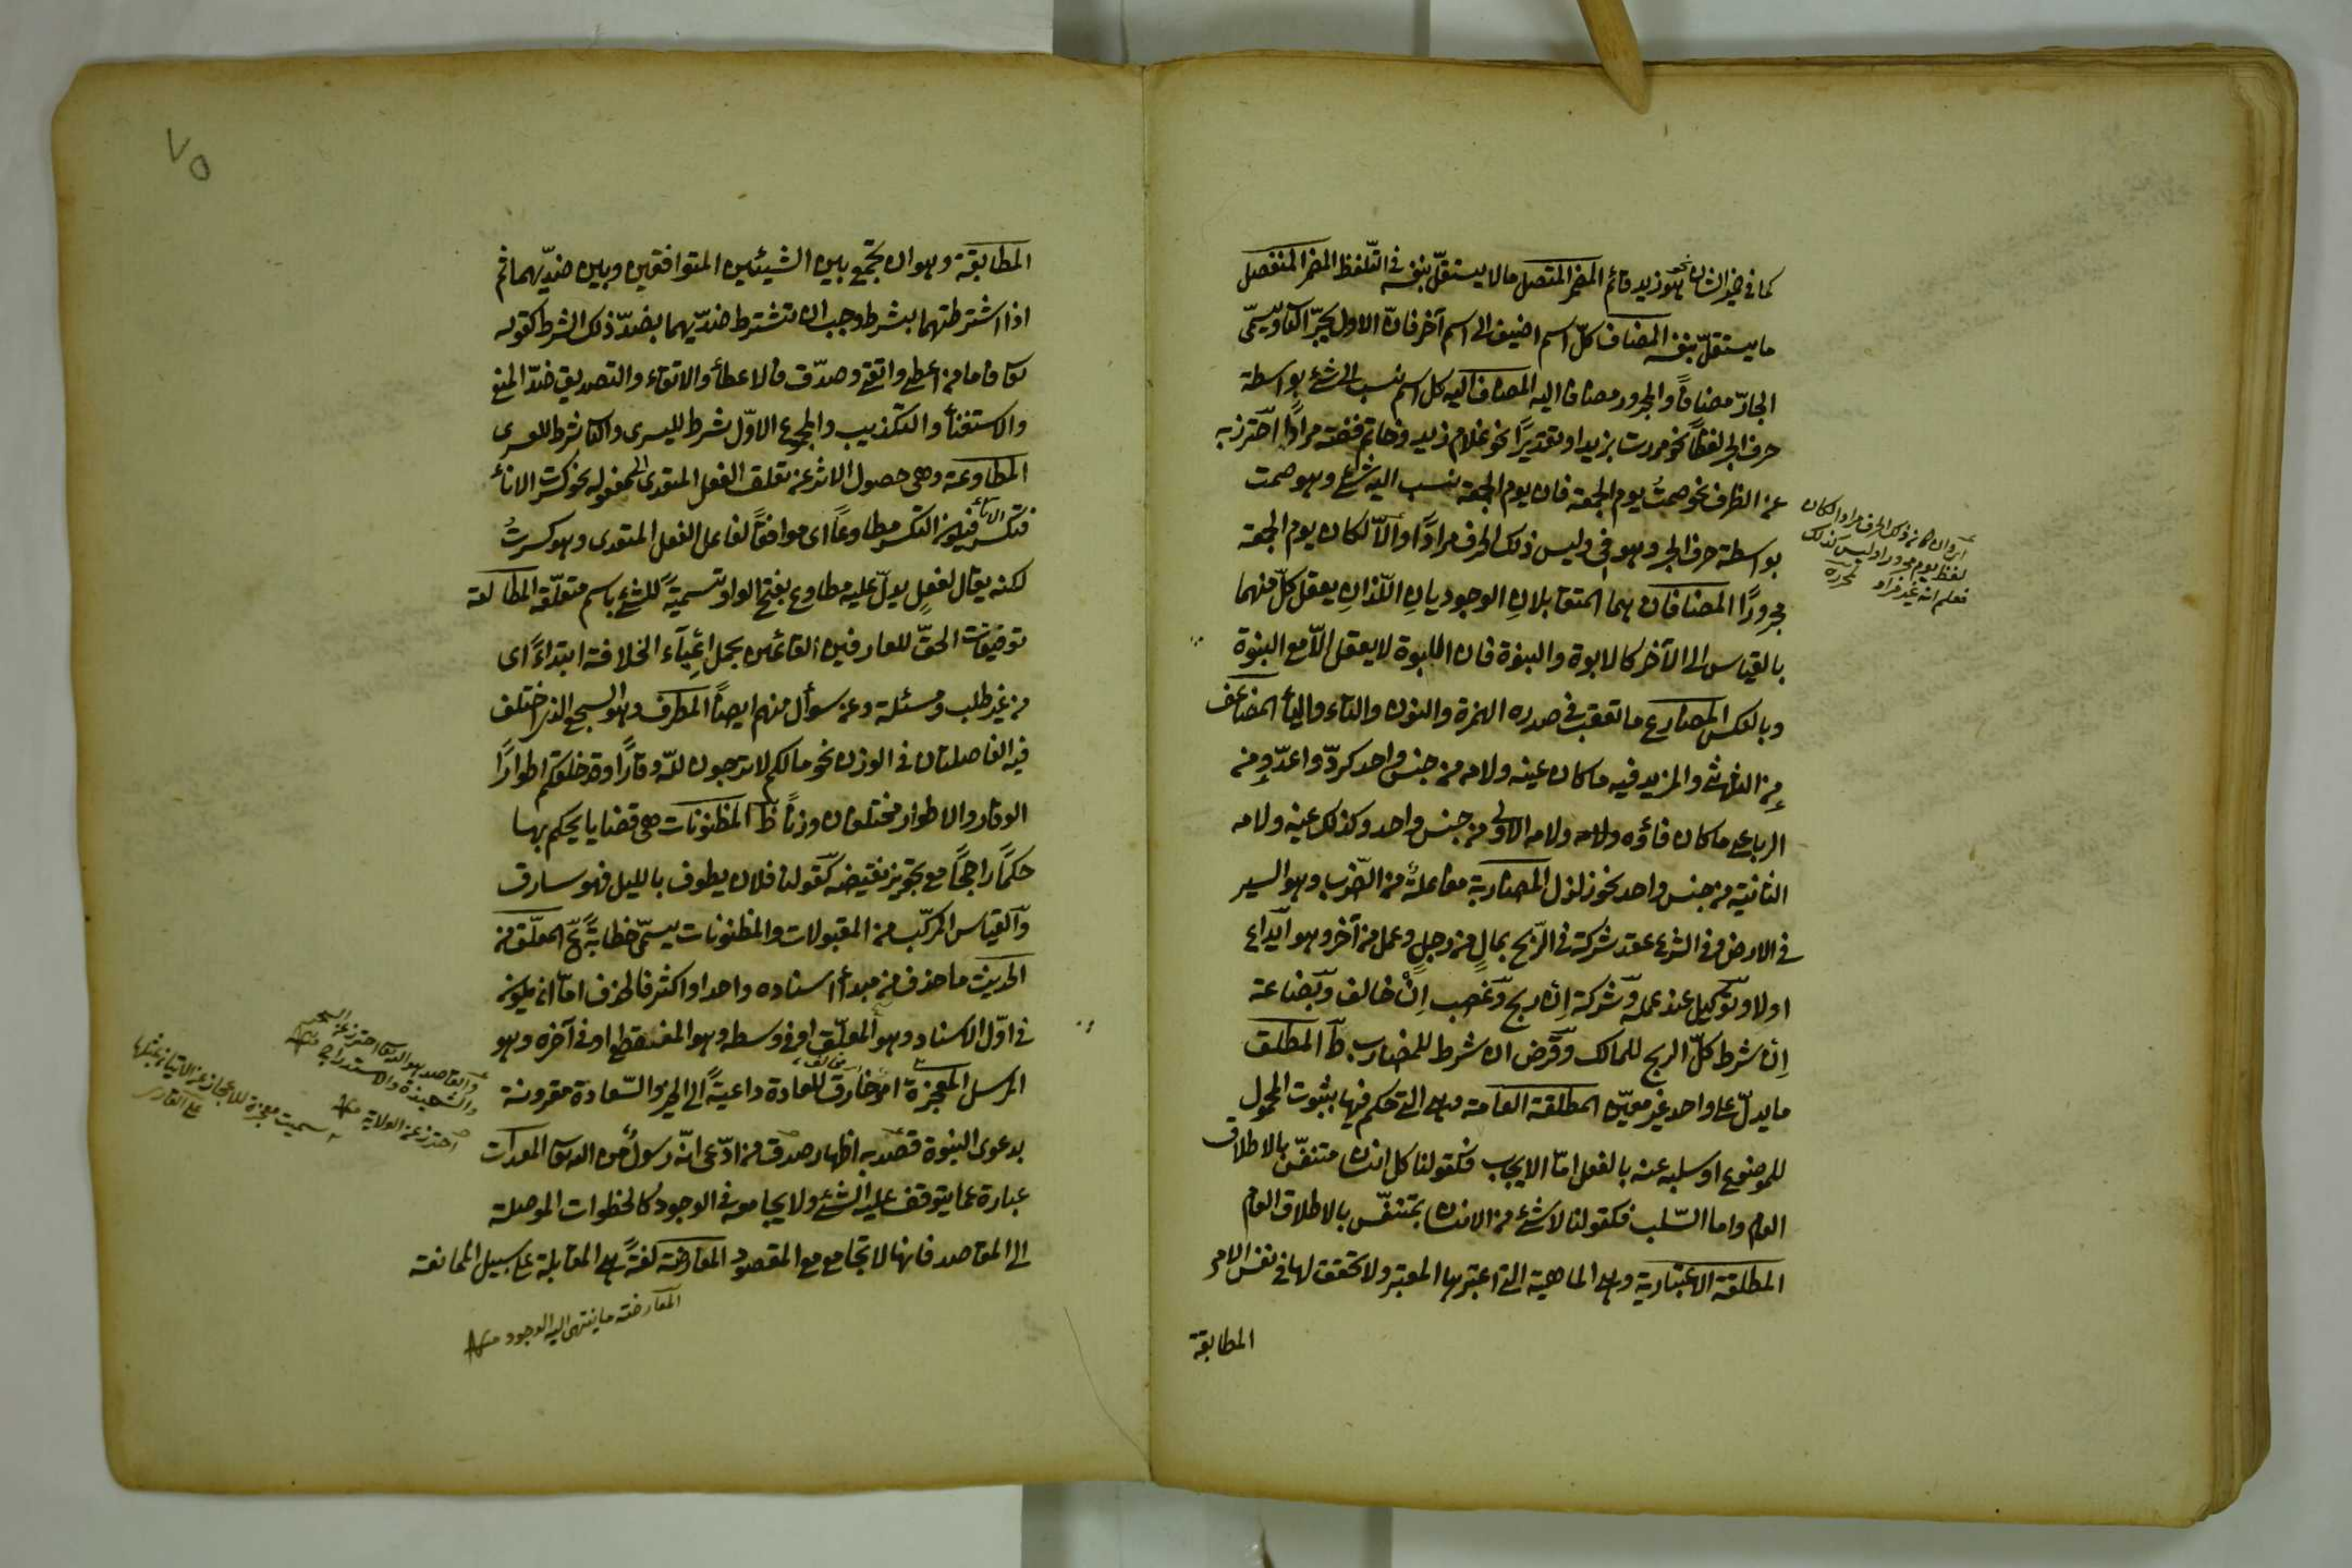 كما في ضمير الشان نحو هو زيد قائم المضمر المتصل ما لا يستقلّ بنفسه في التلفظ المضمر المنفصل
ما يستقلّ بنفسه المضاف كلّ اسم اضيف الى اسم آخر فانّ الاول يجرّ الثاني ويسمّى
الجارّ مضافاً والمجرور مضافا اليه المضاف اليه كل اسم نسب الى شئ بواسطة
حرف الجر لفظاً نحو مررت بزيد او تقديرًا نحو غلام زيد وخاتم فضة مرادًا احترز به
عن الظرف نحو صمتُ يوم الجمعة فان يوم الجمعة نسب اليه شئ وهو صمت
بواسطة حرف الجر وهو في وليس ذلك الحرف مرادًا والّا لكان يوم الجمعة
مجرورًا المضافان هما المتقابلانِ الوجوديانِ اللذانِ يعقل كلّ منهما
بالقياس الى الآخر كالابوة والبنوة فان الابوة لا يعقل الّا مع البنوة
وبالعكس المضارع ما تعقب في صدره الهمزة والنون والتاء والياء المضاعف
من الثلاثي والمزيد فيه ما كان عينه ولامه من جنس واحد كردّ واعدّ ومن
الرباعي ما كان فاؤه ولامه الاولى من جنس واحد وكذلك عينه ولامه
الثانية من جنس واحد نحو زلزل المضاربة مفاعلةٌ من الضّرب وهو السير
في الارض وفي الشرع عقد شركة في الرّبح بمالٍ من رجلٍ وعمل من آخر وهو ايداع
اولا وتوكيل عند عمله وشركة اِن ربح وغصب اِنْ خالف وبضاعة
اِن شرط كلّ الربح للمالك وقرض ان شرط للمضارب ط المطلق
ما يدلّ على واحد غير معيّن المطلقة العامة هي التي حكم فيها بثبوت المحمول
للموضوع او سلبه عنه بالفعل امّا الايجاب فكقولنا كل انسان متنفّس بالاطلاق
العام واما السّلب فكقولنا لا شئ من الانسان بمتنفّس بالاطلاق العام
المطلقة الاعتبارية وهي الماهية التي اعتبرها المعتبر ولا تحقق لها في نفس الامر
المطابقة
اي وان كان ذلك الحرف مرادا لكان
لفظ يوم مجرورا وليس كذلك
فعلم انه غير مراد لمحرره
٧٥
المطابقة وهو ان تجمع بين الشيئين المتوافقين وبين ضدّيهما ثم
اذا اشترطتهما بشرط وجب ان تشترط ضدّيهما بضدّ ذلك الشرط كقوله
تعالى فاما من اعطى واتقى وصدّق فالاعطاء والاتقاء والتصديق ضدّ المنع
والاستغناء والتكذيب والمجموع الاوّل شرط لليسرى والثاني شرط للعسرى
المطاوعة وهي حصول الاثر عن تعلق الفعل المتعدى الى مفعوله نحو كسرت الاناء
فتكسر الاناء فيكون التكسر مطاوعاً اى موافقاً لفاعل الفعل المتعدى وهو كسرتُ
لكنه يقال لفعلٍ يدلّ عليه مطاوع بفتح الواو تسميةً للشئ باسم متعلّقه المطالعة
توفيقات الحقّ للعارفين القائمين بحمل اعباء الخلافة ابتداءً اى
من غير طلب ومسئلة وعن سوأل منهم ايضاً المطرف وهو السجع الذى اختلف
فيه الفاصلتان في الوزن نحو مالكم لا ترجون للّه وقارًا وقد خلقكم اطوارًا
الوقار والاطوار مختلفان وزناً ظ المظنونات هي قضايا يحكم بها
حكمًا راجحًا مع تجويز نقيضه كقولنا فلان يطوف بالليل فهو سارق
والقياس المركّب من المقبولات والمظنونات يسمّى خطابةً ع المعلّق من
الحديث ما حذف من مبدأ اسناده واحد او اكثر فالحذف امّا ان يكون
في اوّل الاسناد وهو المعلّق او في وسطه وهو المنقطع او في آخره وهو
المرسل المعجزة امر خارق للعادة داعيةً الى الخير والسّعادة مقرونة
بدعوى النبوة قصد به اظهار صدق من ادّعى انّه رسولٌ من اللّه تعالى المعدات
عبارة عما يتوقف عليه الشئ ولا يجامعه في الوجود كالخطوات الموصلة
الى المقاصد فانها لا تجامع مع المقصود المعارضة لغةً هي المقابلة على سبيل الممانعة
والقاصد هو اللّه تعالى احترز عن السحر
والشعبذة والاستدراج منه
احترز عن الولاية منه
سميت معجزة للاعجاز عن الاتيان بمثلها
على القادر
المعارضة ما ينتهى اليه الوجود منه